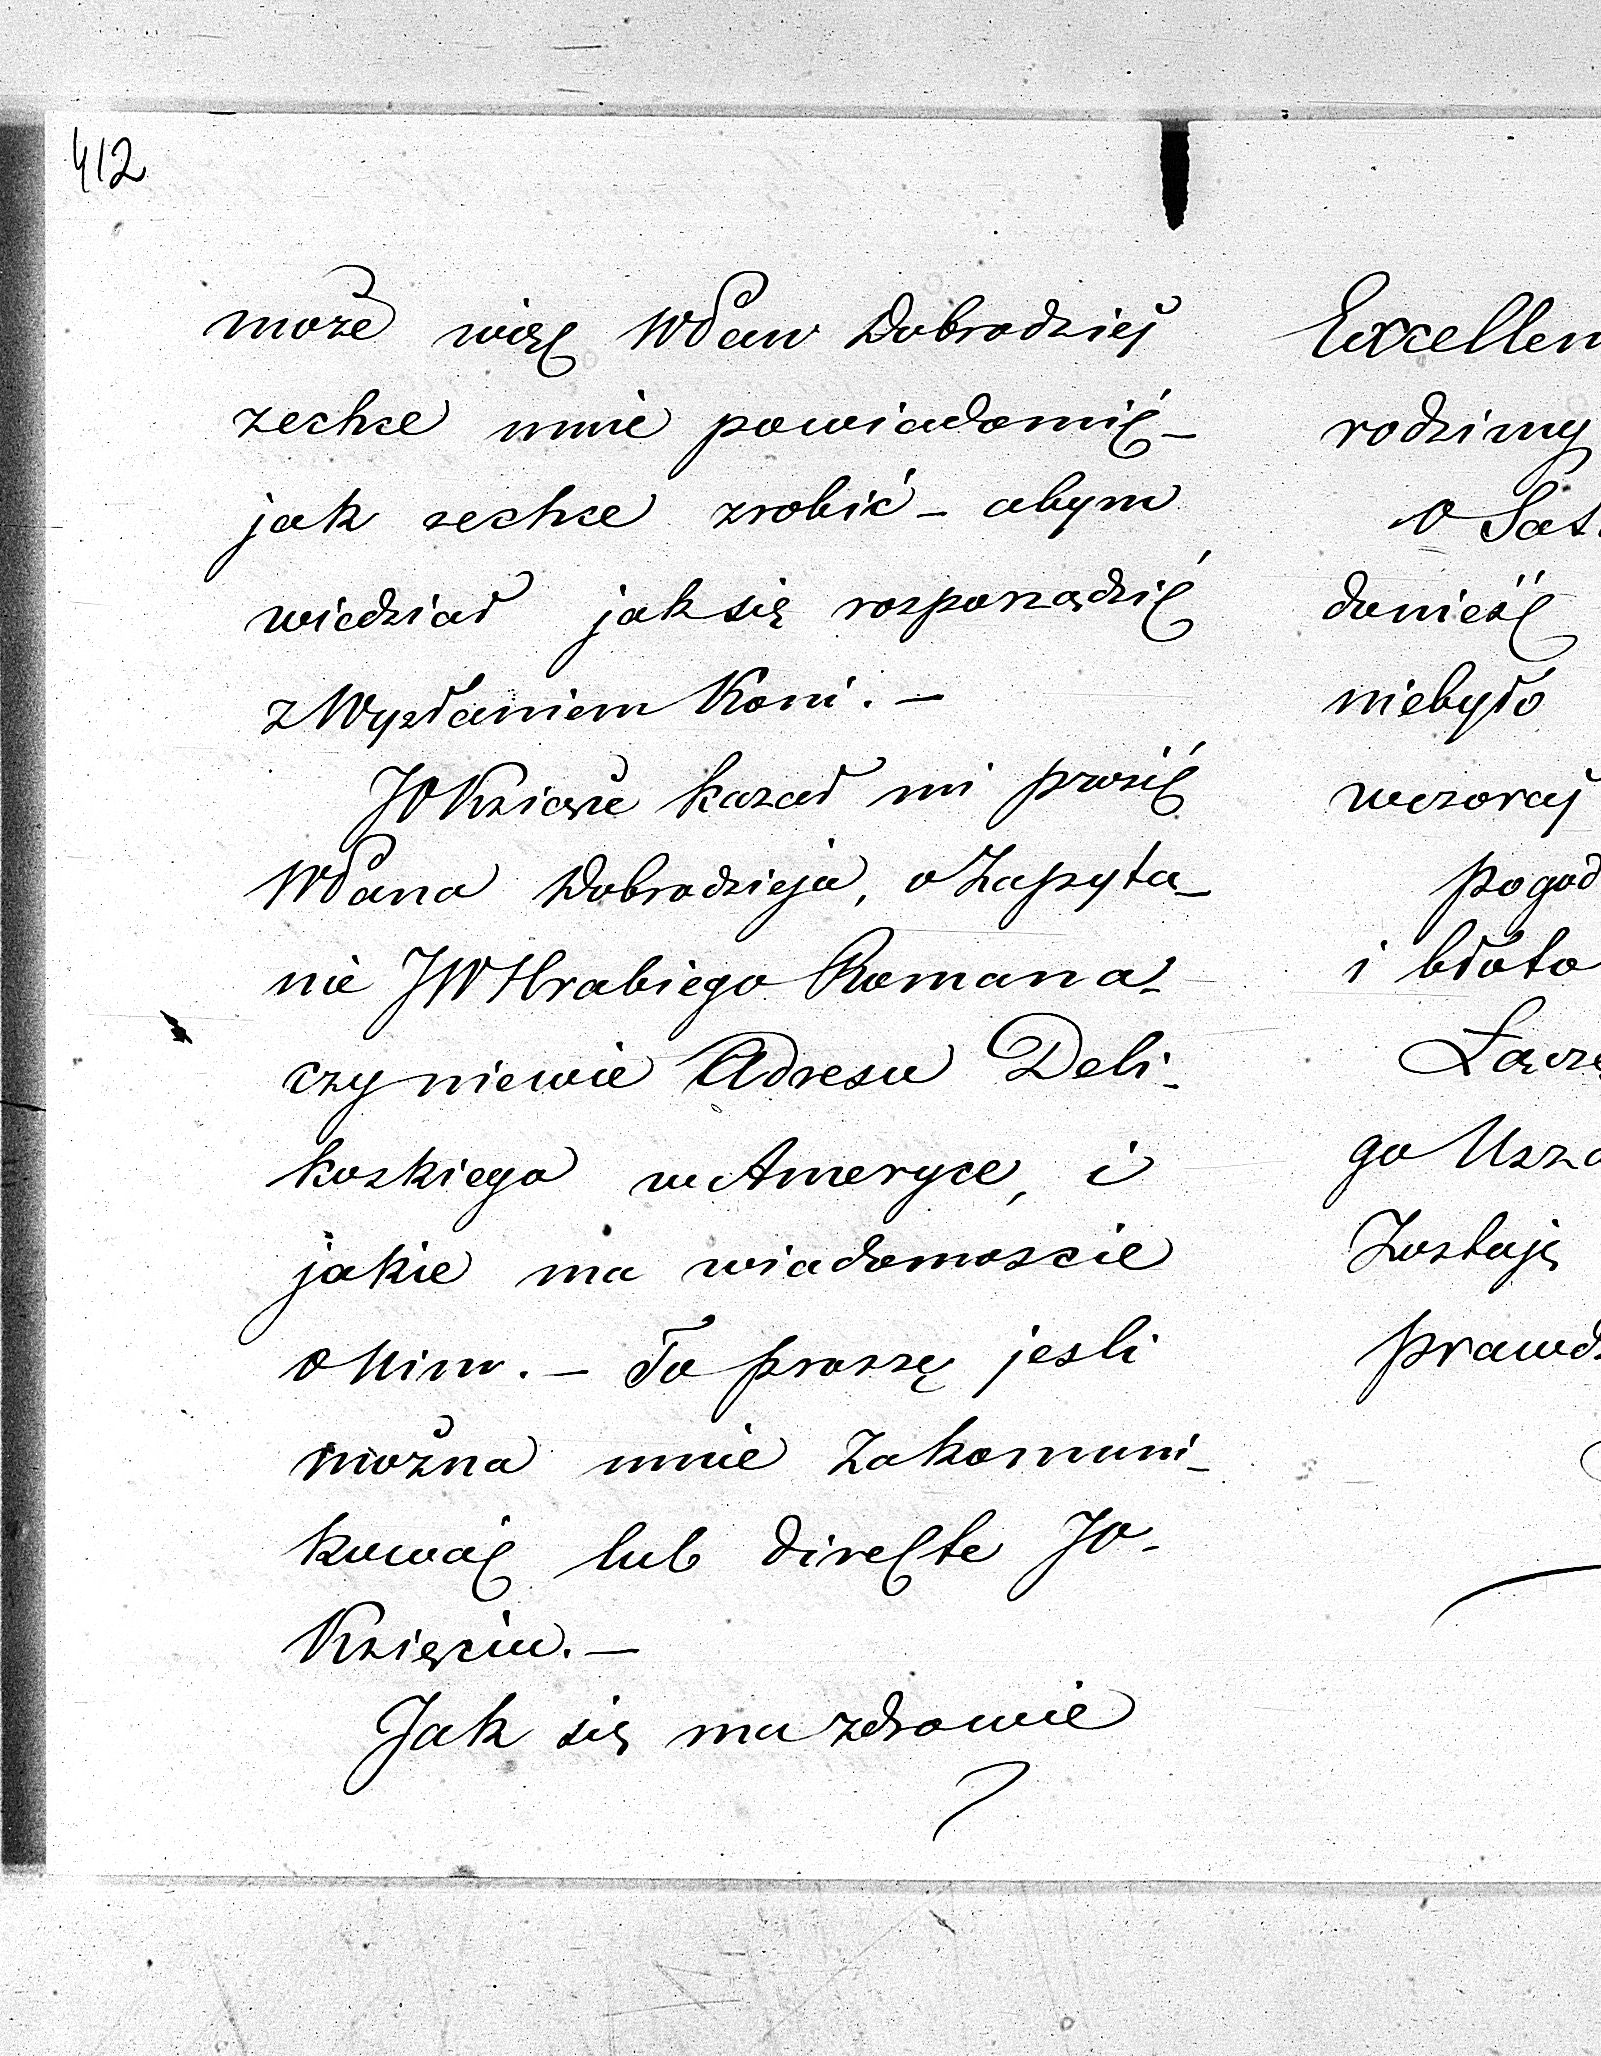 412
może więc WPan Dobrodziej
zechce mnie powiadomić –
jak zechce zrobić – abym
wiedział jak się rosporządzić
z Wysłaniem Koni. –
JO Książe kazał mi prosić
WPana Dobrodzieja, o Zapyta–
nie JW Hrabiego Romana –
czy niewie Adresu Deli–
koskiego w Ameryce, i
jakie ma wiadomoscie
o Nim. – To proszę jesli
można mnie Zakomuni–
kować lub directe JO –
Księciu. –
Jak się ma zdrowie
Excellen
rodzimy
O
donieść
niebyło
wczoraj
pogod
i błoto
Łączę
go Usza
Zostaję
prawdz